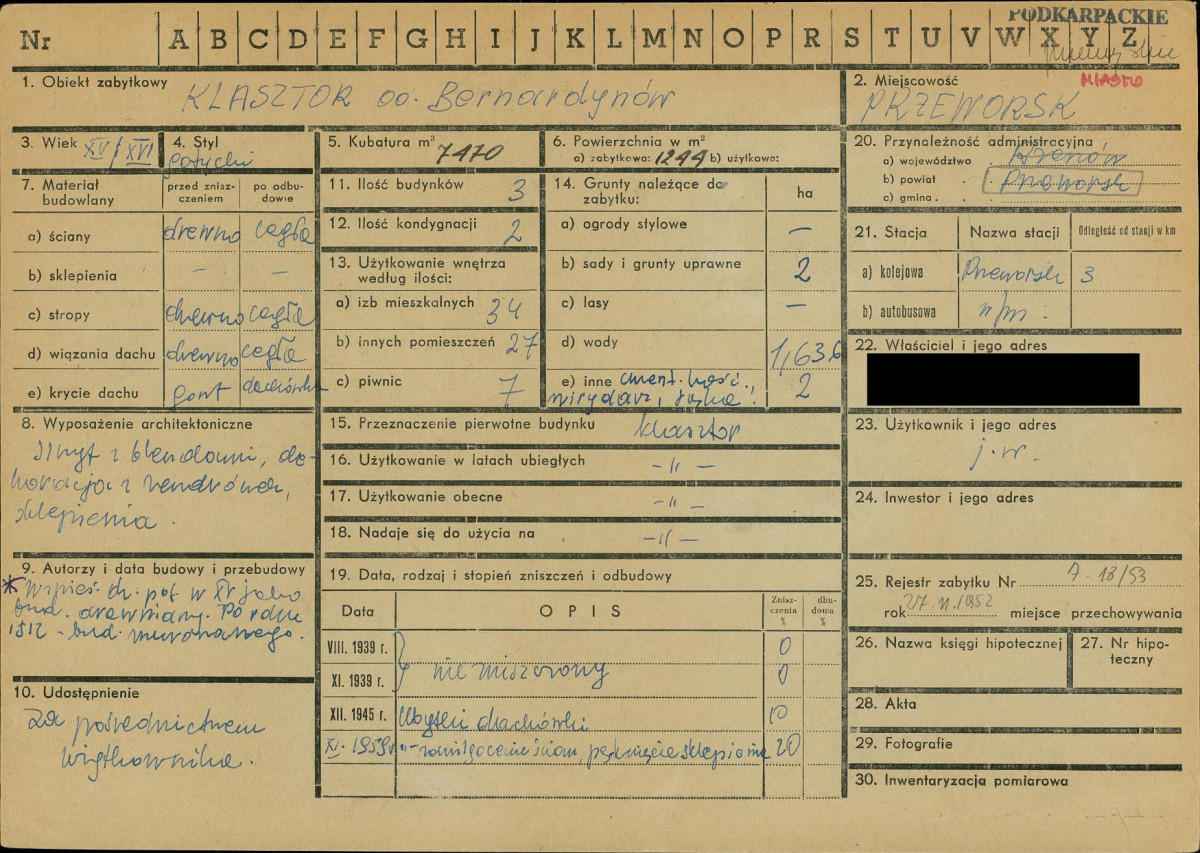 PODKARPACKIE
Nr A B C D E F G H I J K L M N O P R S T U V W X Y Z
MIASTO
1. Obiekt zabytkowy KLASZTOR oo. Bernardynów
2. Miejscowość
PRZEWORSK
3. Wiek XV/XVI
4. Styl gotycki
5. Kubatura m³ 7470
6. Powierzchnia w m²
a) zabytkowa: 1244 b) użytkowa:
7. Materiał budowlany
przed zniszczeniem
po odbudowie
a) ściany drewno cegła
b) sklepienia – –
c) stropy drewno cegła
d) wiązania dachu drewno cegła
e) krycie dachu gont dachówka
8. Wyposażenie architektoniczne
z blendami, de-
koracja z zendrówek,
sklepienia.
9. Autorzy i data budowy i przebudowy
* Wznies. dr. poł w XV jako
bud. drewniany. Po roku
1512 - bud. murowanego.
10. Udostępnienie
Za pośrednictwem
użytkownika.
11. Ilość budynków 3
12. Ilość kondygnacji 2
13. Użytkowanie wnętrza według ilości:
a) izb mieszkalnych 34
b) innych pomieszczeń 27
c) piwnic 7
14. Grunty należące do zabytku:
ha
a) ogrody stylowe –
b) sady i grunty uprawne 2
c) lasy –
d) wody 1,636
e) inne cment. kość.,
wirydarz, łąka. 2
15. Przeznaczenie pierwotne budynku klasztor
16. Użytkowanie w latach ubiegłych -"-
17. Użytkowanie obecne -"-
18. Nadaje się do użycia na -"-
19. Data, rodzaj i stopień zniszczeń i odbudowy
Data OPIS Zniszczenia % dbudowa %
VIII. 1939 r. 0
nie niszczony
XI. 1939 r. 0
XII. 1945 r. Ubytki dachówki 10
XI. 1959 r. "- zawilgocenie ścian, pęknięcie sklepienia 20
20. Przynależność administracyjna
a) województwo Rzeszów
b) powiat Przeworsk
c) gmina
21. Stacja Nazwa stacji Odległość od stacji w km
a) kolejowa Przeworsk 3
b) autobusowa w/m.
22. Właściciel i jego adres
23. Użytkownik i jego adres
j.w.
24. Inwestor i jego adres
25. Rejestr zabytku Nr A-18/53
rok 27.XI.1952 miejsce przechowywania
26. Nazwa księgi hipotecznej
27. Nr hipoteczny
28. Akta
29. Fotografie
30. Inwentaryzacja pomiarowa